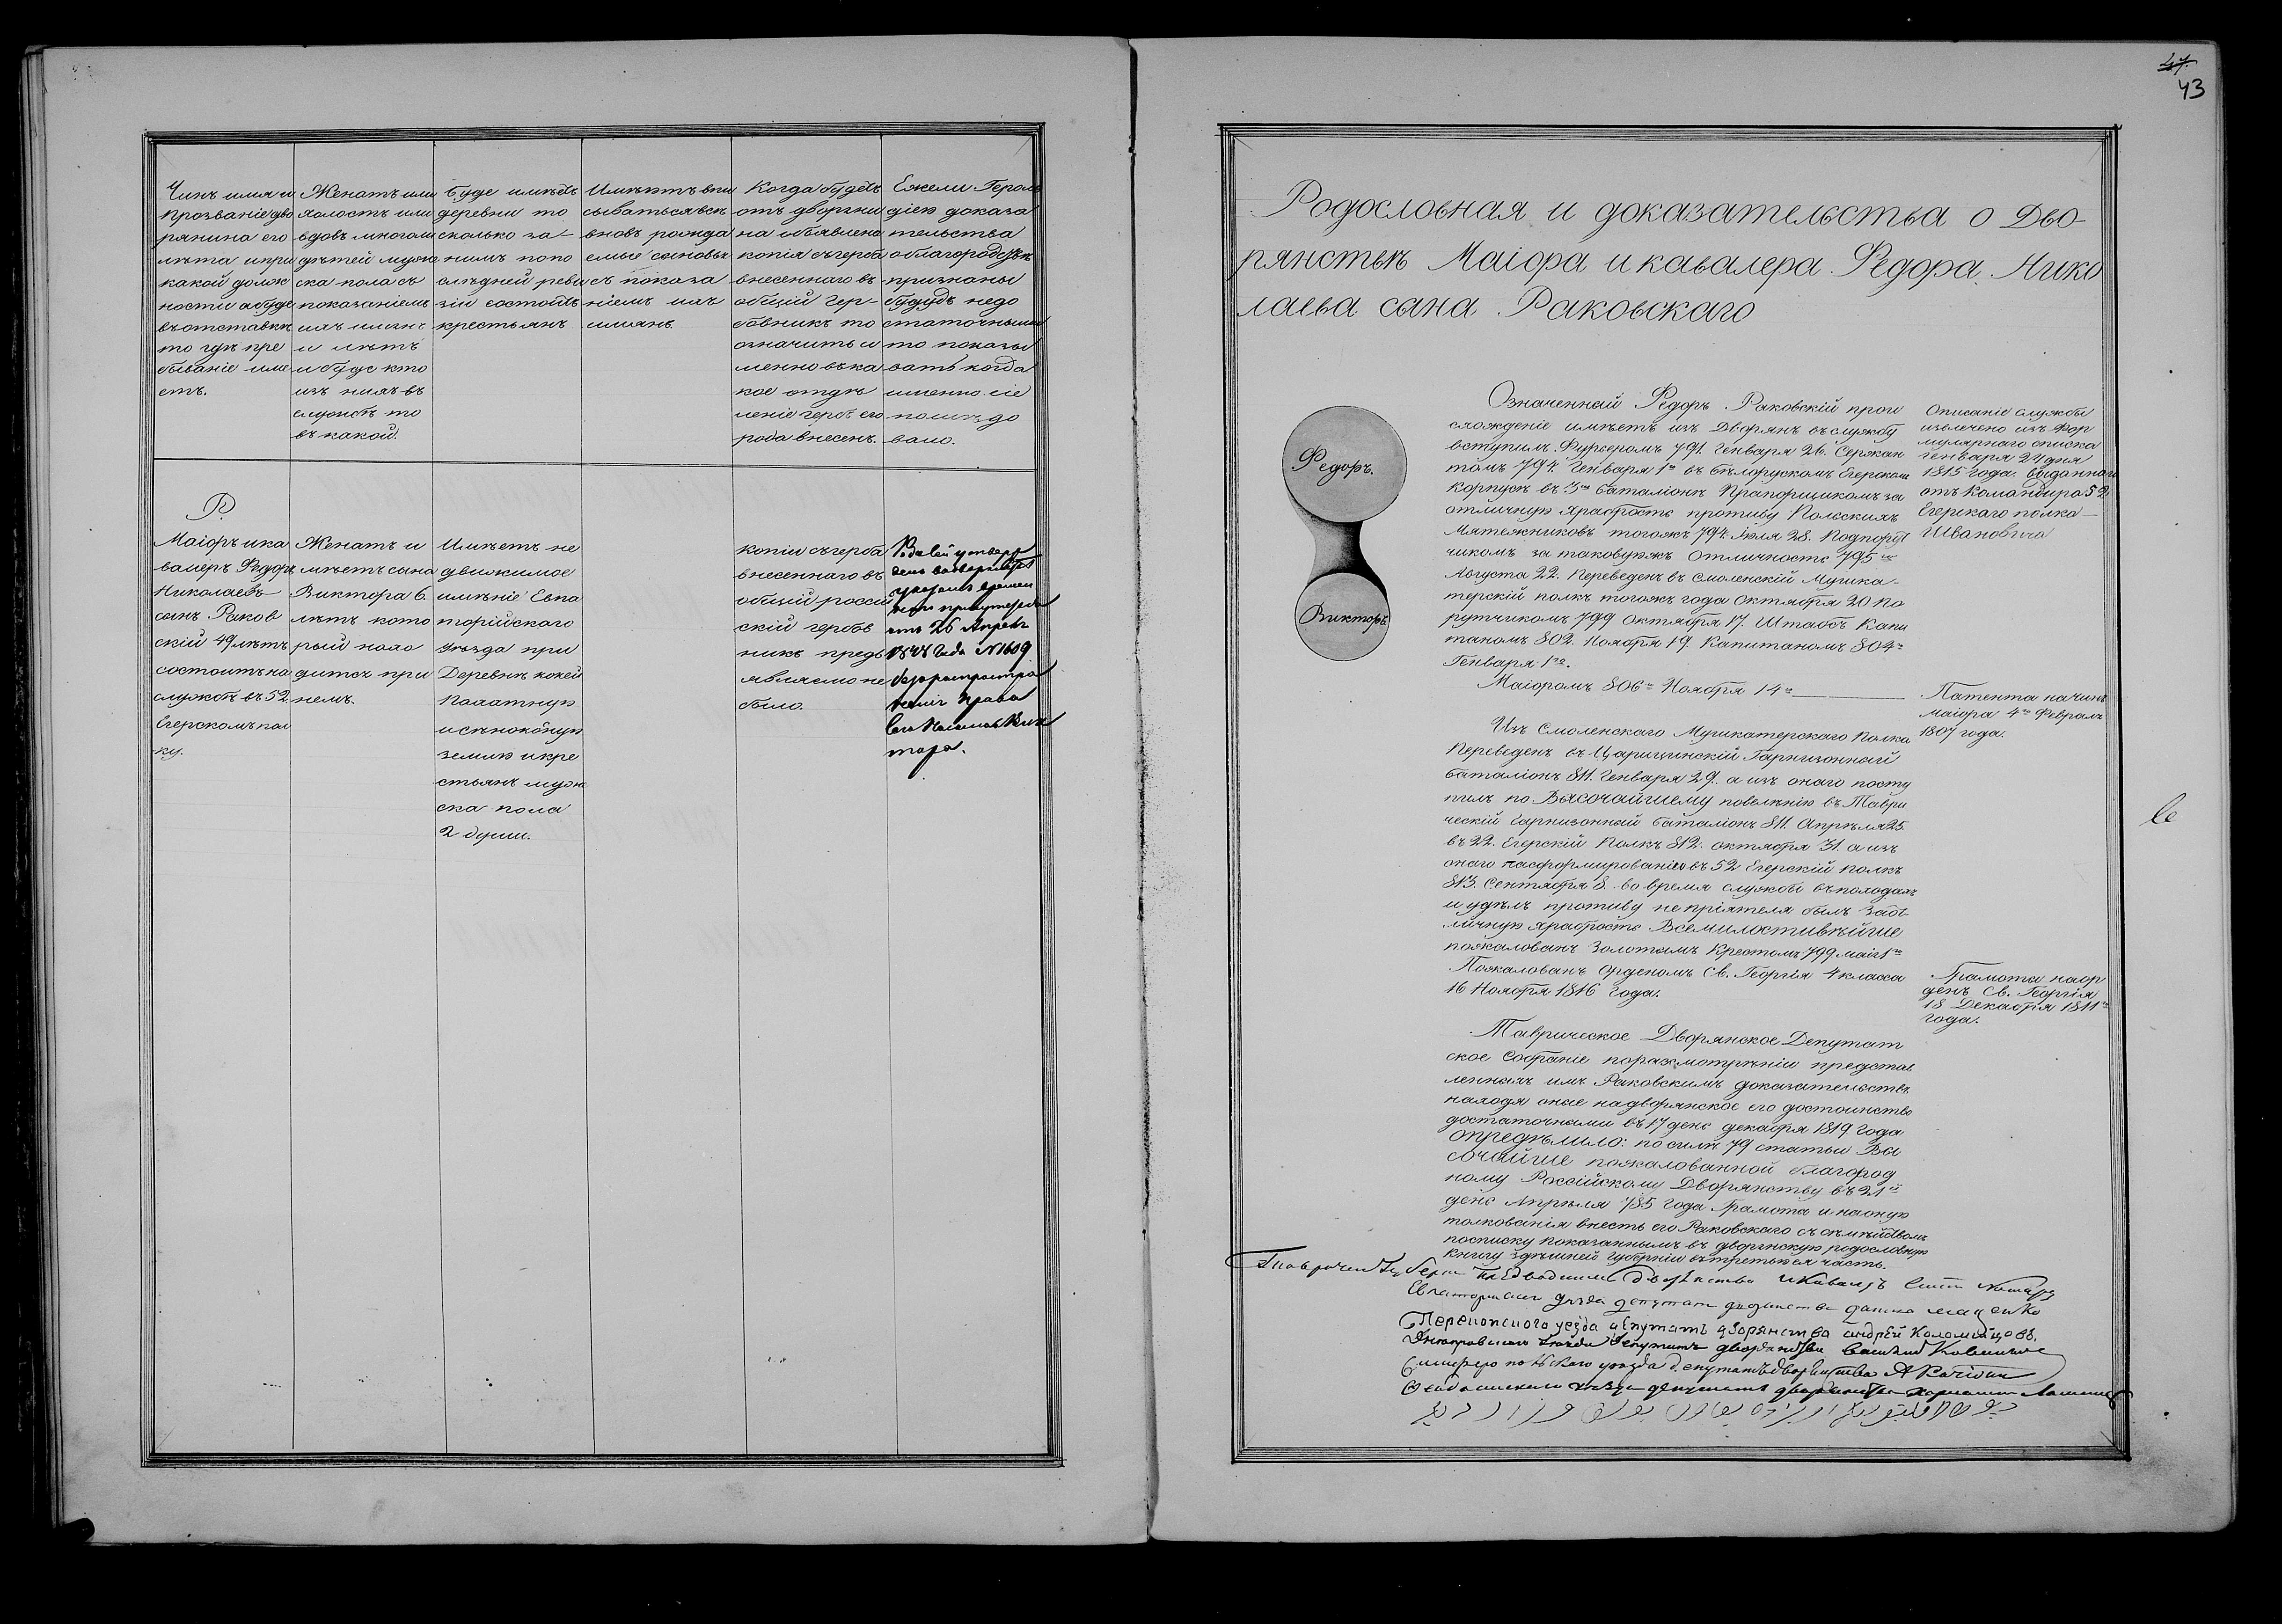 Чинъ имя и
прозваніе дво
рянина его
лѣта и при
какой долж
ности а буде
въ отставкѣ
то гдѣ пре
бываніе име
етъ.
Женатъ или
холостъ или
вдовъ много ли
дѣтей мужс
ка пола съ
показаніемъ
ихъ имянъ
и лѣтъ
и буде кто
изъ нихъ въ
службѣ то
въ какой.
Буде имѣетъ
деревни то
сколько за
нимъ по по
слѣдней реви
зіи состоитъ
крестьянъ
Имѣютъ впи
сываться всѣ
вновь рожда
емые сыновья
съ показа
ніемъ ихъ
имянъ.
Когда будетъ
отъ дворяни
на объявлена
копія съ герба
внесеннаго въ
общій гер-
бовникъ то
означить и
менно въ ка
кое отдѣ
леніе гербъ его
рода внесенъ.
Ежели Героль
діею доказа
тельства
о благородствѣ
признаны
будудъ недо
статочными
то показы
вать когда
именно сіе
послѣдо
вало.
Р.
Маіоръ и ка
валеръ Федоръ
Николаевъ
сынъ Раков
скій 49 лѣтъ
состоитъ на
службѣ въ 52
Егерскомъ пол
ку.
Женатъ и
мѣетъ сына
Виктора 6
лѣтъ кото
рый нахо
дитсч при
немъ.
Имѣетъ не
движимое
имѣніе Евпа
торійскаго
уѣзда при
Деревнѣ
пахатную
и сѣнокосную
землю и кре
стьянъ муж
ска пола
2 души.
копіи съ герба
внесеннаго въ
общій россій
скій гербов
никъ предъ
являемо не
было.
отъ 26 Апрѣля
Года №1609
права
мора.
43
Родословная и доказательства о Дво-
рянствѣ Маіора и кавалера Федора Нико
лаева сына Раковскаго
Федоръ.
Викторъ.
Означенный Федоръ Раковскій прои
схожденіе имѣетъ изъ Дворянъ въ службу
вступилъ Фурьеромъ 791. Генваря 26. Сержан
томъ 794. Генваря 1го въ Бѣлорускомъ Егерском
Корпусѣ въ 3мъ баталіонѣ Прапорщикомъ за
отличную храбрость противу Польскихъ
Мятежниковъ тогожъ 794. Іюля 28. Подпору
чикомъ за таковуюжъ отличность 795го
Августа 22. Переведенъ въ Смоленскій Мушка-
терскій полкъ тогожъ года октября 20 По
рутчикомъ 799 октября 17. Штабсъ Капи
таномъ 802. Ноября 19. Капитаномъ 804го
Генваря 1го.
Маіоромъ 806го Ноября 14го
Изъ Смоленскаго Мушкатерскаго Полка
Переведенъ въ Царицинскій Гарнизонный
баталіонъ 811. Генваря 29. а изъ онаго посту
пилъ по Высочайшему повелѣнію въ Таври
ческій гарнизонный баталіонъ 811. Апрѣля 25.
въ 22. Егерскій Полкъ 812. октября 31. а изъ
онаго на сформированіе въ 52 Егерскій полкъ
813. Сентября 8. во время службы въ походахъ
и у дѣлъ противу непріятеля былъ за от
личную храбрость Всемилостивѣйше
пожалованъ Золотымъ Крестомъ 799 маія 1го
Пожалованъ Орденомъ Св. Георгія 4 класса
16 Ноября 1816 года.
Таврическое Дворянское Депутат
ское Собраніе по разсмотрѣніи представ
ленныхъ имъ Раковскимъ доказательствъ
находя оные на дворянское его достоинство
достаточными въ 17 день декабря 1819 года
опредѣлило: по силѣ 79 статьи Вы
сочайше пожалованной благород
ному Россійскому Дворянству въ 21й
день Апрѣля 785 года Грамоты и на оную
толкованія внесть его Раковскаго съ семѣйством
по списку показаннымъ въ дворянскую родословную
книгу здѣшней губерніи въ третью ея часть.
Описаніе службы
извлечено изъ фор
мулярнаго списка
Генваря 24 дня
1815 года. выданнаго
отъ Командира 52
Егерскаго полка
Ивановича
Патента на чинъ
маіора 4го Февраля
1807 года.
Грамота на ор
денъ Св. Георгія
18 Декабря 1811го
года.
Евпаторискаго уѣзда депутатъ дворянства
Перекопского уезда депутатъ дворянства андрей Коломийцовъ.
Днепровскаго уѣзда депутатъ дворянства
Симферопольскаго уѣзда депутатъ дворянства
уѣзда депутатъ дворянства